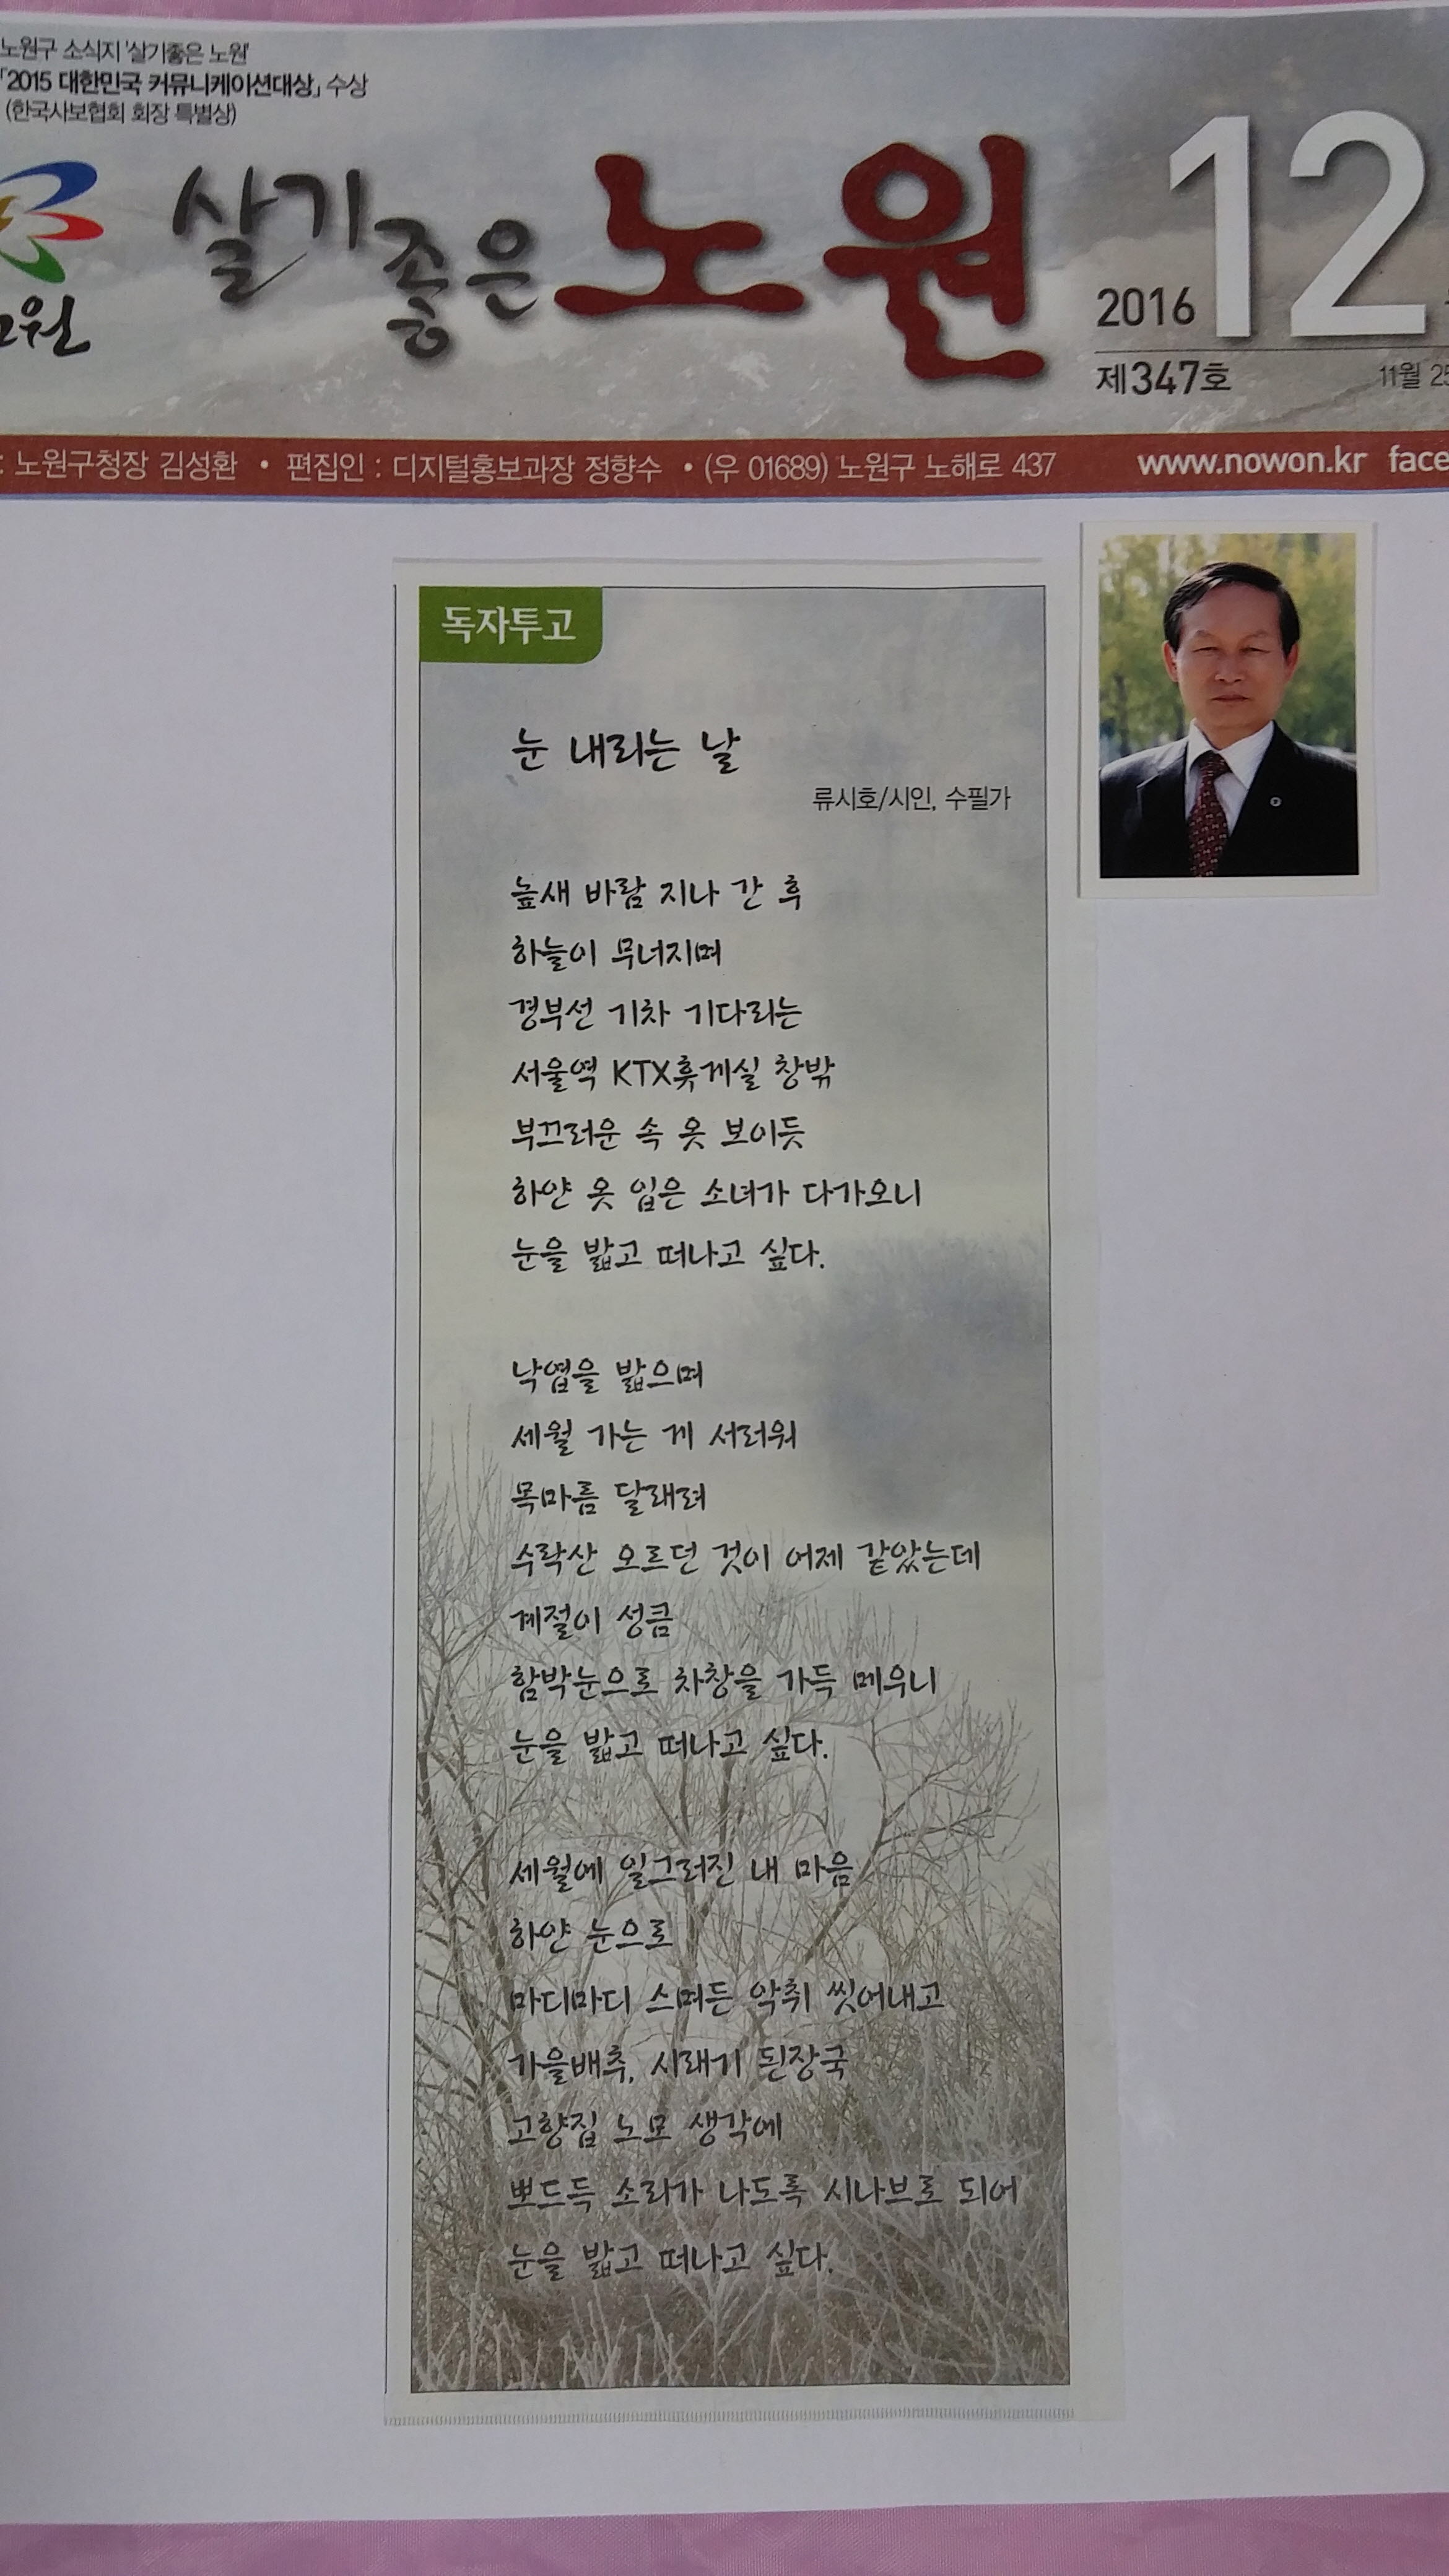 노원구 소식지 '살기좋은 노원'
「2015 대한민국 커뮤니케이션대상」 수상
(한국사보협회 회장 특별상)
살기좋은 노원
2016 12
제347호
11월 25
노원구청장 김성환 • 편집인 : 디지털홍보과장 정향수 • (우 01689) 노원구 노해로 437 www.nowon.kr face
독자투고
눈 내리는 날
류시호/시인, 수필가
높새 바람 지나 간 후
하늘이 무너지며
경부선 기차 기다리는
서울역 KTX휴게실 창밖
부끄러운 속 옷 보이듯
하얀 옷 입은 소녀가 다가오니
눈을 밟고 떠나고 싶다.
낙엽을 밟으며
세월 가는 게 서러워
목마름 달래려
수락산 오르던 것이 어제 같았는데
계절이 성큼
함박눈으로 차창을 가득 메우니
눈을 밟고 떠나고 싶다.
세월에 일그러진 내 마음
하얀 눈으로
마디마디 스며든 악취 씻어내고
가을배추, 시래기 된장국
고향집 노모 생각에
뽀드득 소리가 나도록 시나브로 되어
눈을 밟고 떠나고 싶다.